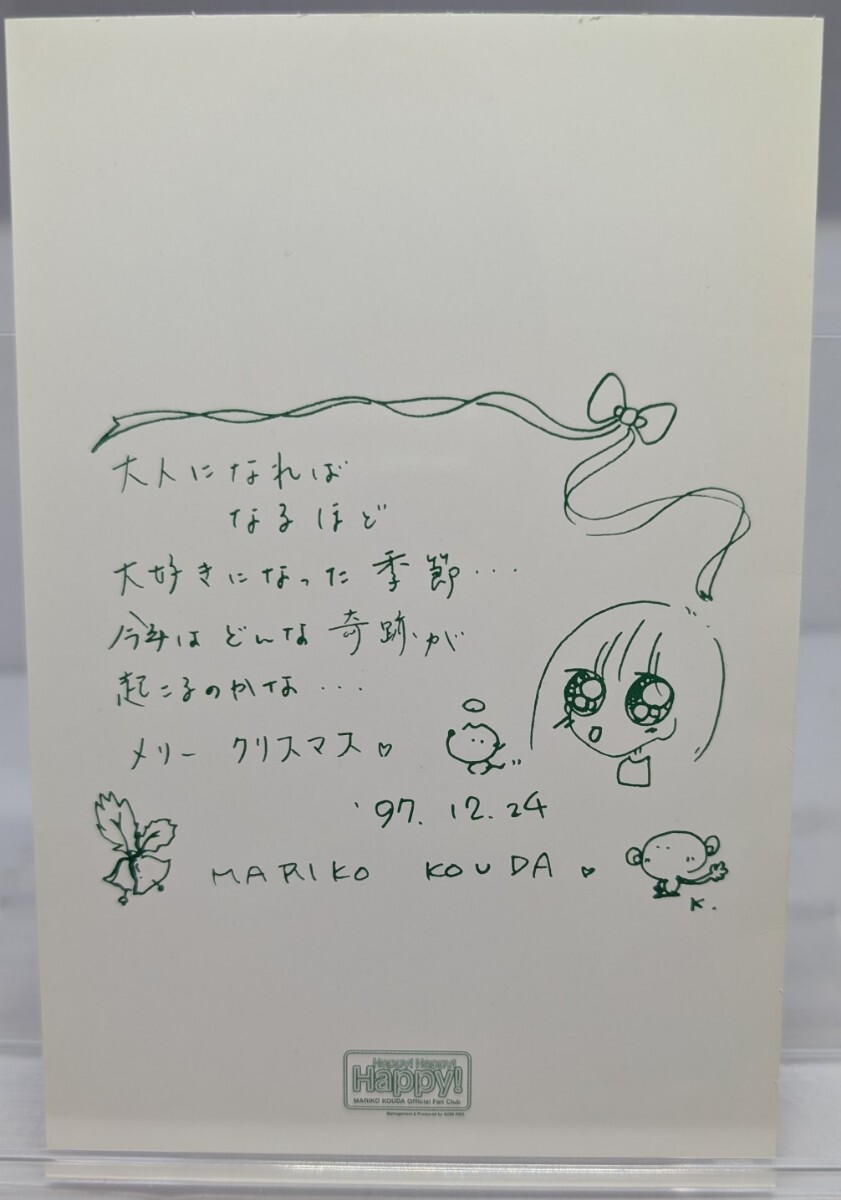 大人になれば
なるほど
大好きになった季節・・・
今年はどんな奇跡が
起こるのかな・・・
メリー クリスマス♡
'97.12.24
MARIKO KOUDA ♡
K.
Happy! Happy!
Happy!
MARIKO KOUDA Official Fan Club
Management & Produced by